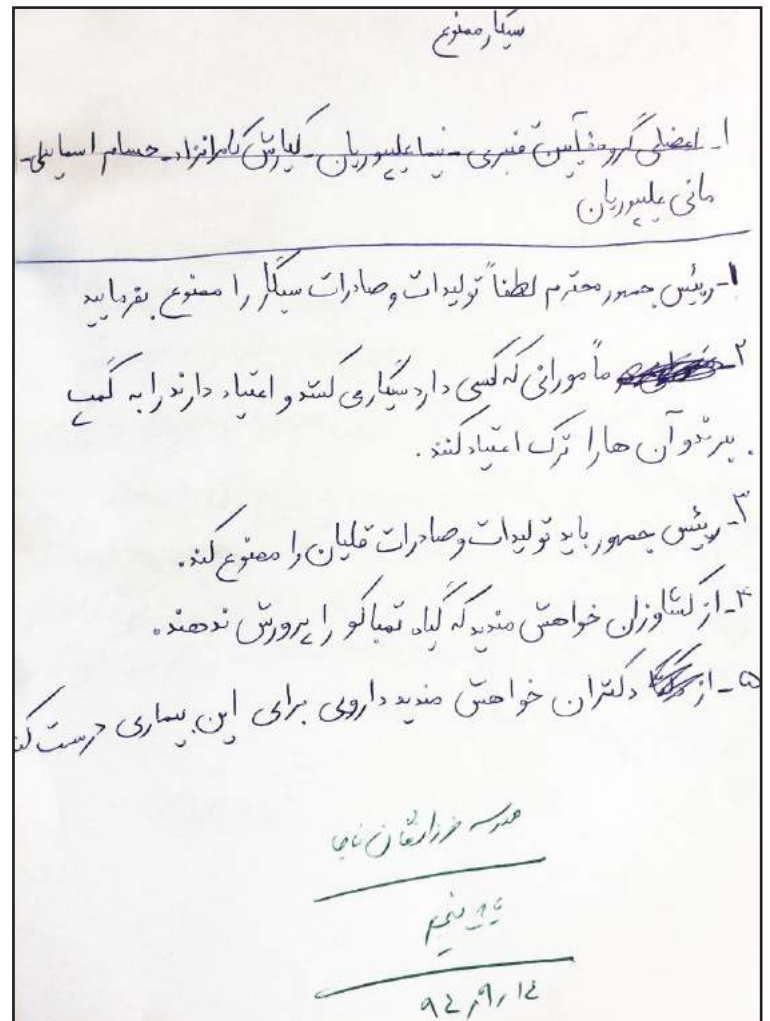 سیگار ممنوع
۱ـ اعضای گروه: آیین قنبری ـ نیما علیپوریان ـ کیارش کامرانزاد ـ حسام اسماعیلی ـ
مانی علیپوریان
۱ـ رئیس جمهور محترم لطفاً تولیدات و صادرات سیگار را ممنوع بفرمایید
۲ـ مأمورانی که کسی دارد سیگار می کشند و اعتیاد دارند را به کمپ
ببرند و آن ها را ترک اعتیاد کنند.
۳ـ رئیس جمهور باید تولیدات و صادرات قلیان را ممنوع کند.
۴ـ از کشاورزان خواهش مندید که گیاه تمباکو را پرورش ندهند.
۵ـ از دکتران خواهش مندید دارویی برای این بیماری درست
مدرسه فرزانگان ناجا
پنجم
۹۴/۹/۱۴